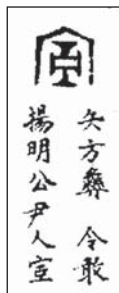 矢方彝 令敢
揚明公尹人